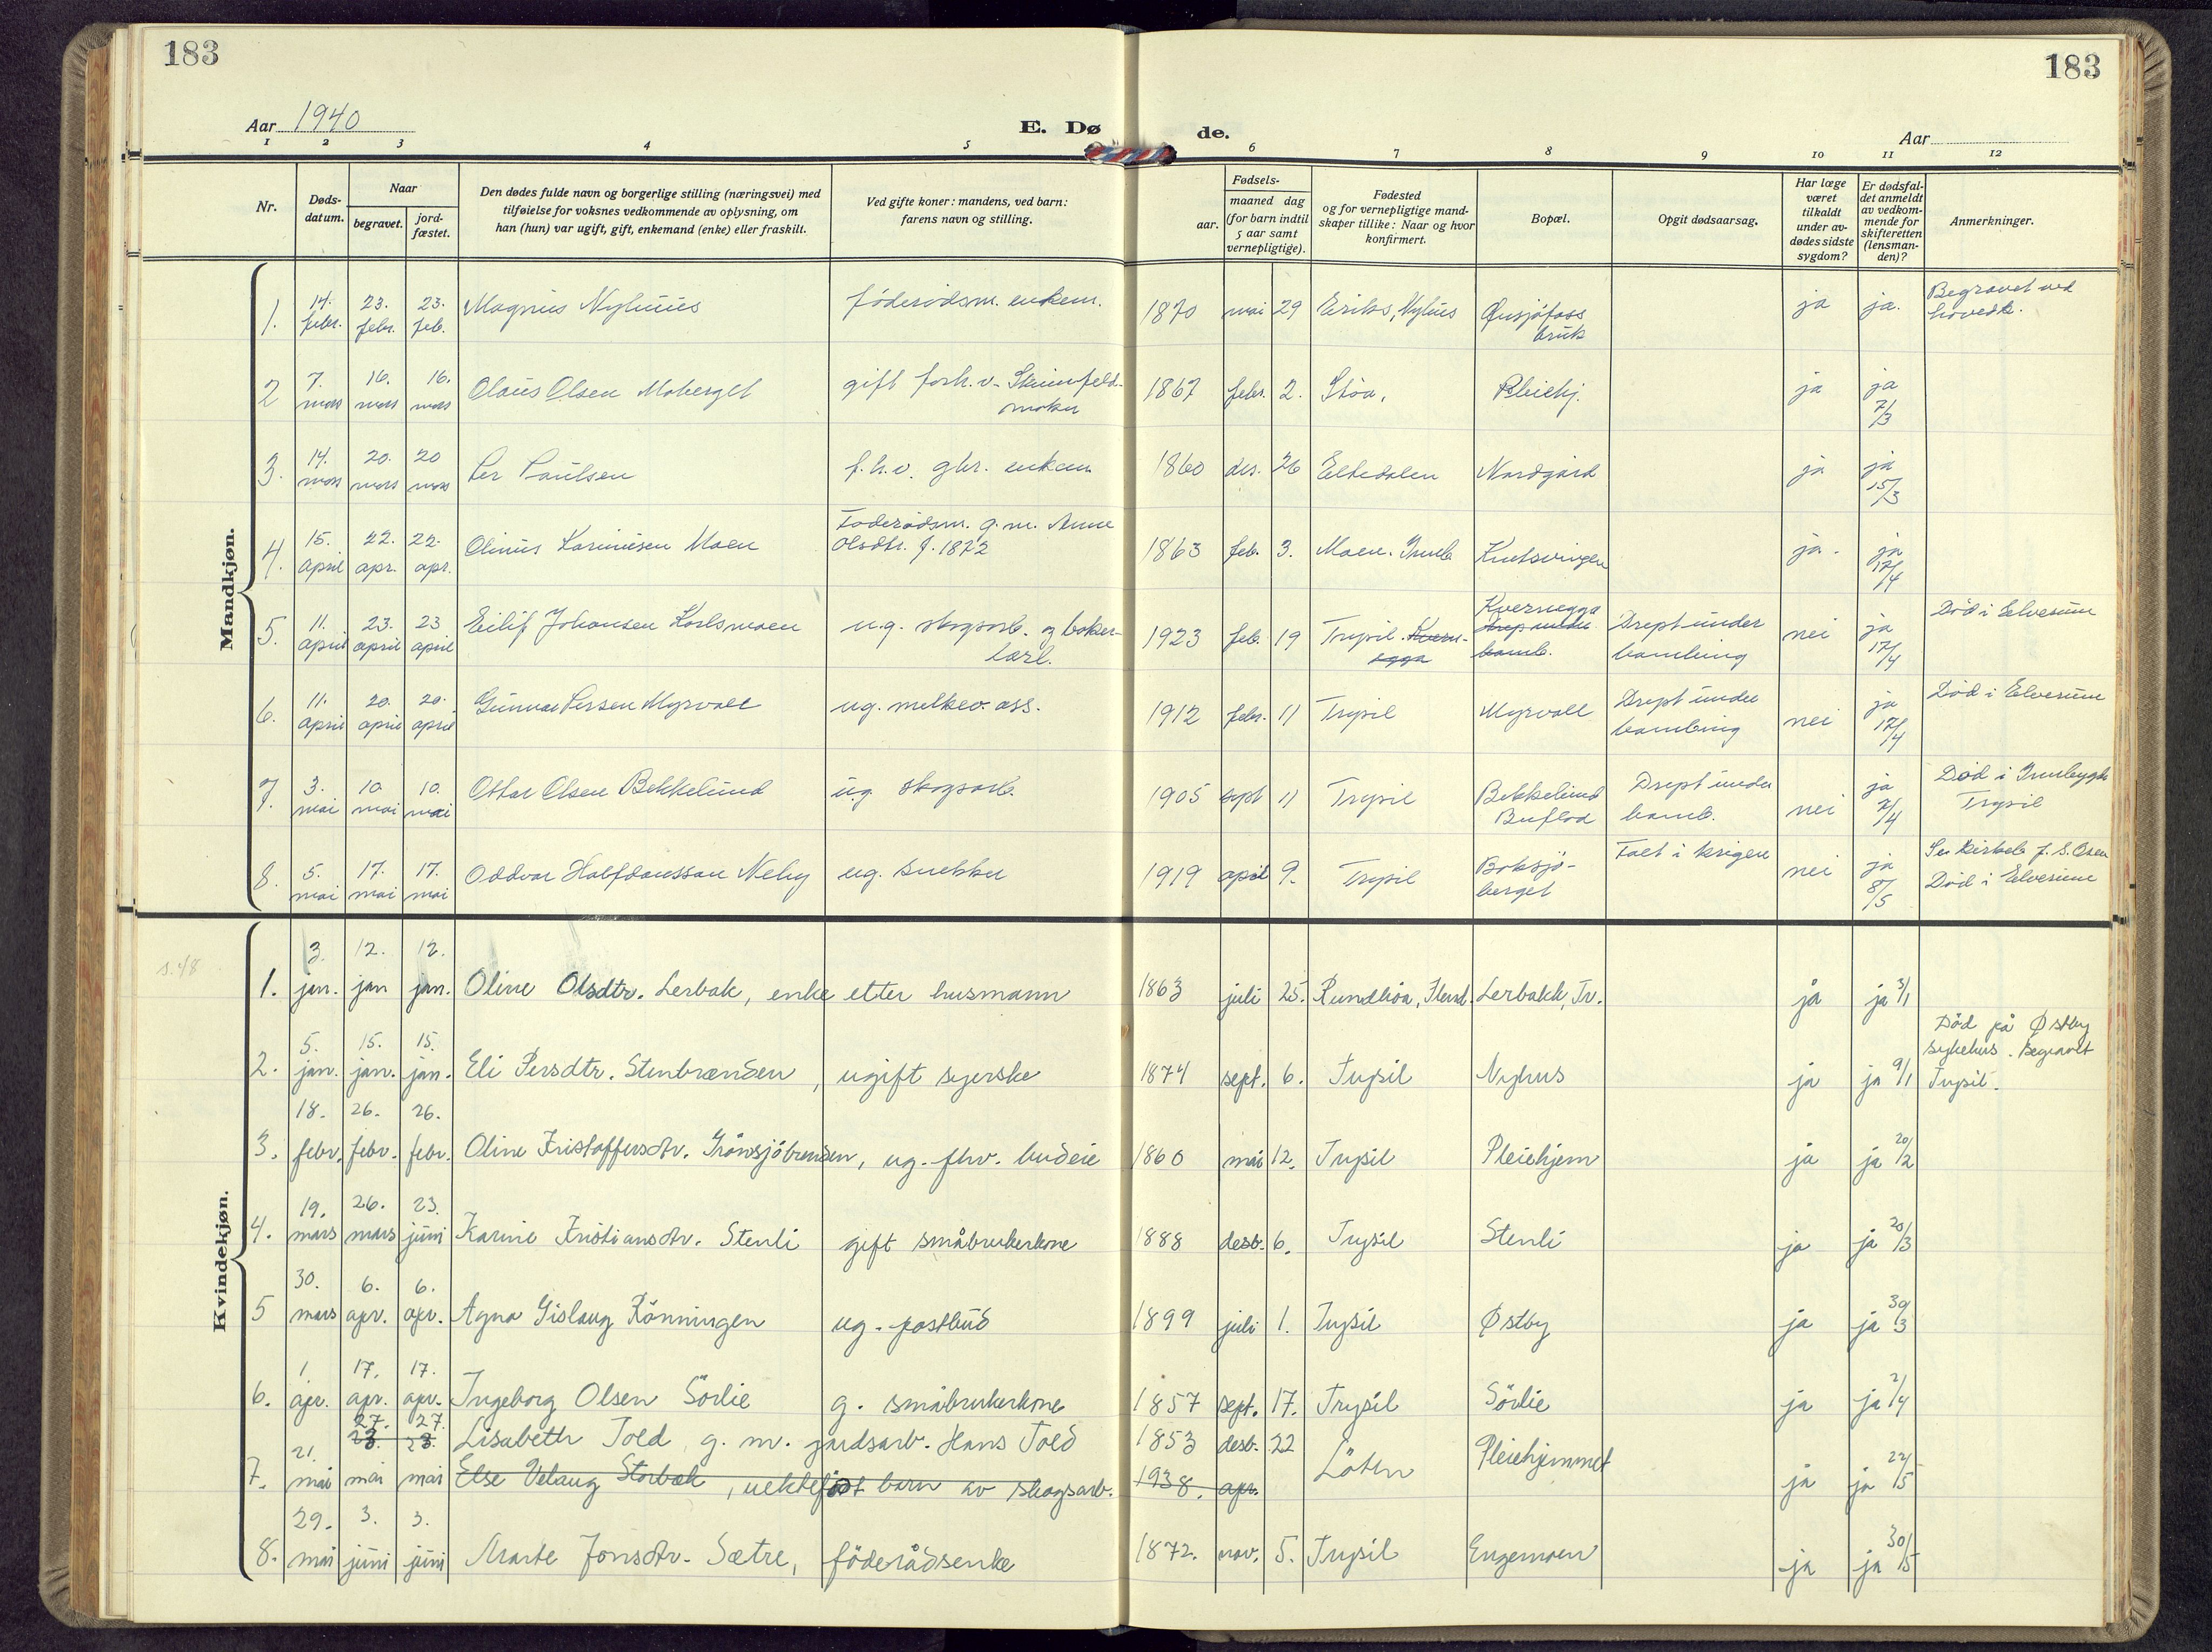 183
183
Aar 1940
E. Dø
de.
Aar
1 2 3 4 5 6 7 8 9 10 11 12
Nr.
Døds-
datum.
Naar
begravet.
jord-
fæstet.
Den dødes fulde navn og borgerlige stilling (næringsvei) med
tilføielse for voksnes vedkommende av oplysning, om
han (hun) var ugift, gift, enkemand (enke) eller fraskilt.
Ved gifte koner: mandens, ved barn:
farens navn og stilling.
Fødsels-
aar.
maaned dag
(for barn indtil
5 aar samt
vernepligtige).
Fødested
og for vernepligtige mand-
skaper tillike: Naar og hvor
konfirmert.
Bopæl.
Opgit dødsaarsag.
Har læge
været
tilkaldt
under av-
dødes sidste
sygdom?
Er dødsfal-
det anmeldt
av vedkom-
mende for
skifteretten
(lensman-
den)?
Anmerkninger.
Mandkjøn.
1. 14. febr. 23. febr. 23. feb. Magnus Nyhuus føderådsm. enkem. 1870 mai 29 Nyhus bruk ja ja. Begravet ved hovedk.
2 7. mars 16. mars 16. mars Olaus Olsen Moberget gift forh.v. 1867 febr. 2. Støa, Pleiehj. ja ja 7/3
3. 14. mars 20. mars 20 mars Per Paulsen f.h.v. gbr. enkem. 1860 des. 26 Eltedalen Nordgård ja ja 15/3
4. 15. april 22. apr. 22. apr. Olinus Moen Føderådsm. g.m. Anne Olsdtr. f. 1872 1863 feb. 3. Moen. Innb. Knutsvingen ja. ja 17/4
5. 11. april 23. april 23 april Eilif Johansen Karlsmoen ug. skogsarb. og baker-lærl. 1923 feb. 19 Trysil Kvern-egga Kvernegga Drept under bomb. Drept under bombing nei ja 17/4 Død i Elverum
6. 11. april 20. april 20. april Gunnar Persen Myrvoll ug. melkev. ass. 1912 febr. 11 Trysil Myrvoll Drept under bombing nei ja 17/4 Død i Elverum
7. 3. mai 10. mai 10. mai Ottar Olsen Bekkelund ug. skogsarb. 1905 sept 11 Trysil Bekkelund Buflod Drept under bomb. nei ja 7/4 Død i Innbygda Trysil
8. 5. mai 17. mai 17. mai Oddvar Halfdanssøn Neby ug. snekker 1919 april 9. Trysil Boksjø-berget Falt i krigen nei ja 8/5 Død i Elverum
s. 48
Kvindekjøn.
1. 3. jan. 12. jan 12. jan. Oline Olsdtr. Lerbak, enke etter husmann 1863 juli 25. Lerbakk, Tr. ja ja 3/1
2. 5. jan. 15. jan. 15. jan. Eli Persdtr. Stenbrænden, ugift syerske 1874 sept. 6. Trysil Nyhus ja ja 9/1 Død på Østby sykehus. Begravet Trysil.
3. 18. febr. 26. febr. 26. febr. Oline Kristoffersdtr. Grønsjöbrenden, ug. fhv. budeie 1860 mai 12. Trysil Pleiehjem ja ja 20/2
4. 19. mars 26. mars 23. juni Karine Kristiansdtr. Stenli gift småbrukerkone 1888 desb. 6. Trysil Stenli ja ja 20/3
5 30. mars 6. apr. 6. apr. Agna Gislaug Rönningen ug. postbud 1899 juli 1. Trysil Østby ja ja 30/3
6. 1. apr. 17. apr. 17. apr. Ingeborg Olsen Sörlie g. småbrukerkone 1857 sept. 17. Trysil Sörlie ja ja 2/4
27. 27. Lisabeth Told, g. m. jordsarb. Hans Told 1853 desb. 22 Löten Pleiehjemmet
7. 21. mai 23. mai 23. mai Else Velaug Storbæk, uektefødt barn av skogsarb. 1938. apr. ja ja 22/5
8. 29. mai 3. juni 3. juni Marte Jonsdtr. Sætre, föderådsenke 1872. nov. 5. Trysil Engemoen ja ja 30/5